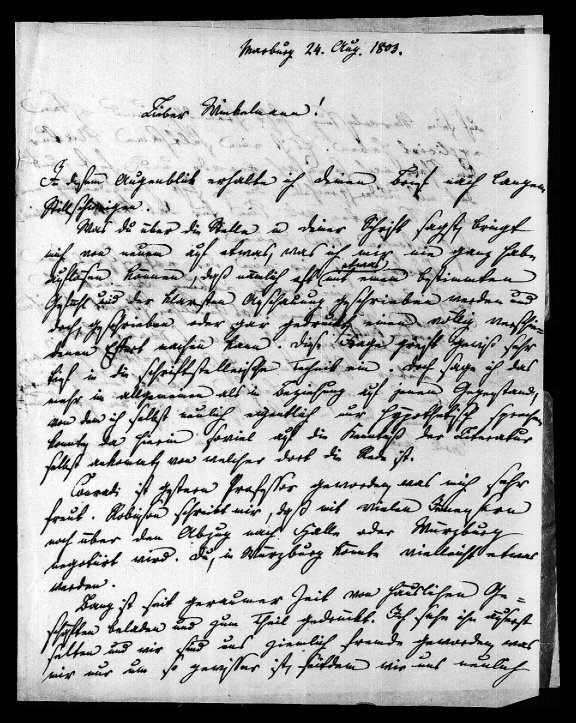 Marburg 24. Aug. 1803.
Lieber Winkelmann!
In diesem Augenblik erhalte ich deinen Brief nach langem
Stillschweigen.
Was du über die Stelle in deiner Schrift sagst, bringt
mich von neuem auf etwas, was ich mir nie ganz habe
auflösen können, daß nämlich oft etwas mit einem bestimmten
Gefühl und der klarsten Anschauung geschrieben werden und
doch geschrieben oder gar gedruckt einen völlig verschie-
denen Effect machen kann. diese Frage greift gewiß sehr
tief in die schriftstellerische Technik ein. doch sage ich das
mehr im allgemeinen als in Beziehung auf jenen Gegenstand,
von dem ich selbst neulich eigentlich nur hypothetisch sprechen
konnte, da hierin soviel auf die Kenntniß der Literatur
selbst ankommt, von welcher dort die Rede ist.
Conradi ist gestern Professor geworden, was mich sehr
freut. Robinson schreibt mir, daß mit vielen Jenensern
noch über den Abzug nach Halle oder Würzburg
negotiirt wird. Du, in Würzburg könnte vielleicht etwas
werden.
Bang ist seit geraumer Zeit von häuslichen Ge-
schäften beladen und zum Theil gedrückt. Ich sehe ihn äußerst
selten und wir sind uns ziemlich fremde geworden, was
mir nur um so gewisser ist, seitdem wir uns neulich